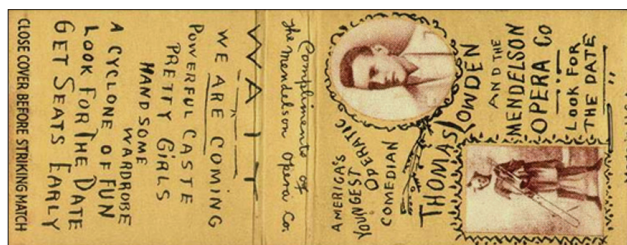 CLOSE COVER BEFORE STRIKING MATCH
WAIT
WE ARE COMING
POWERFUL CASTE
PRETTY GIRLS
HANDSOME
WARDROBE
A CYCLONE OF FUN
LOOK FOR THE DATE
GET SEATS EARLY
Compliments of
The Mendelson Opera Co.
AMERICA'S
YOUNGEST
OPERATIC
COMEDIAN
THOMAS LOWDEN
AND THE
MENDELSON
OPERA CO
LOOK FOR
THE DATE